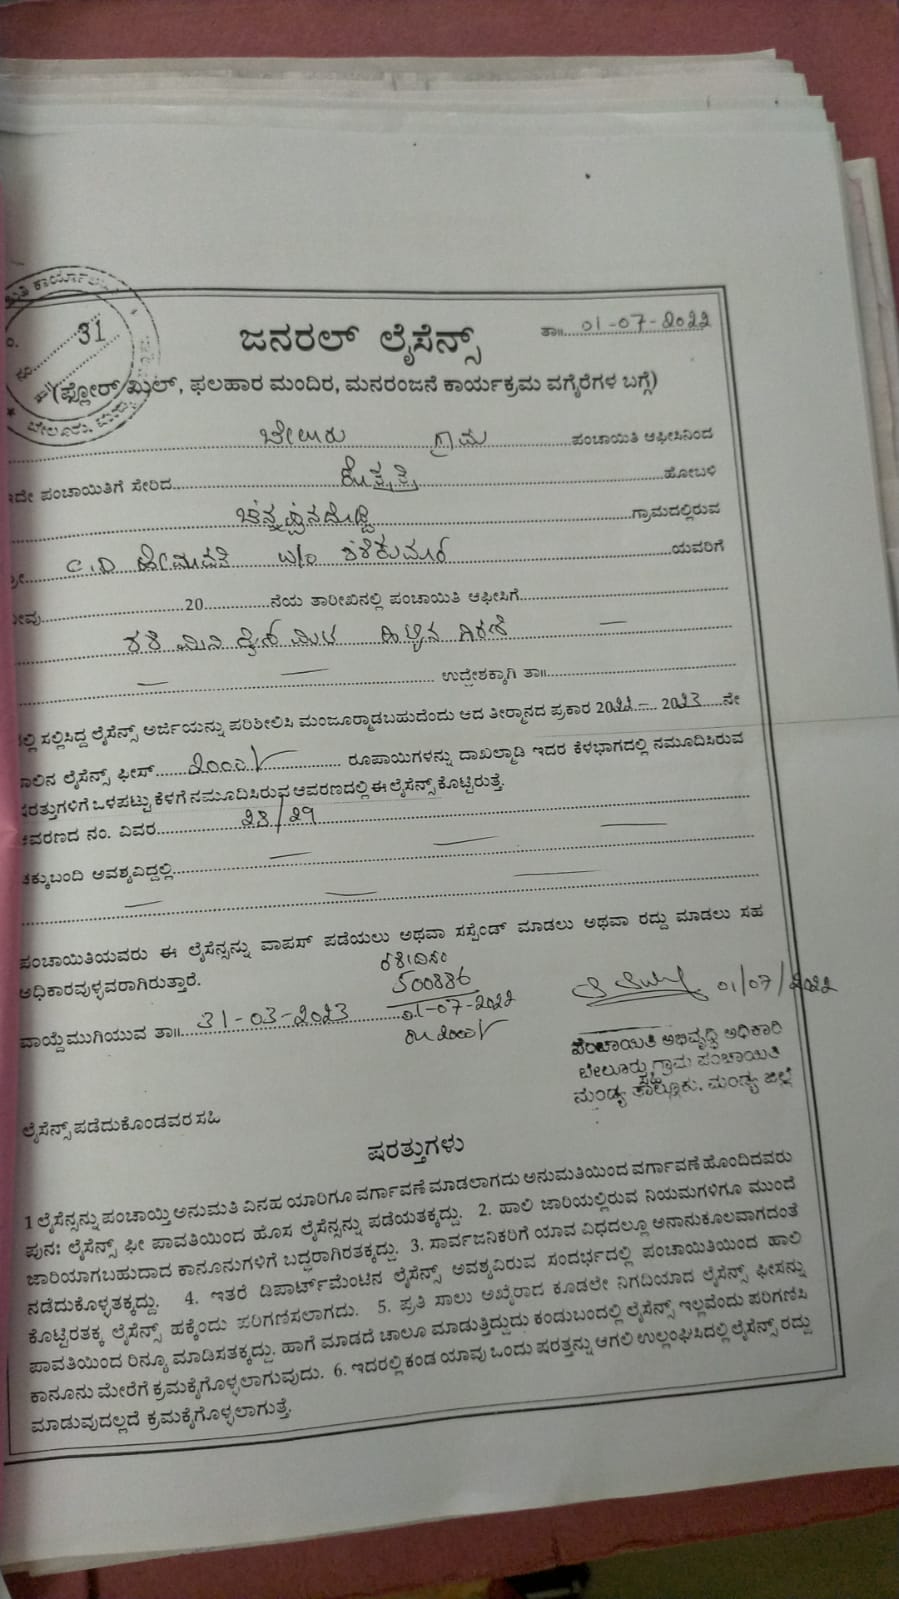 31
ಜನರಲ್ ಲೈಸೆನ್ಸ್
ತಾ॥ 01-07-2022
(ಫ್ಲೋರ್ ಮಿಲ್, ಫಲಹಾರ ಮಂದಿರ, ಮನರಂಜನೆ ಕಾರ್ಯಕ್ರಮ ವಗೈರೆಗಳ ಬಗ್ಗೆ)
ಬೇಲೂರು ಗ್ರಾಮ ಪಂಚಾಯಿತಿ ಆಫೀಸಿನಿಂದ
ಇದೇ ಪಂಚಾಯಿತಿಗೆ ಸೇರಿದ ಹೋಬಳಿ
ಗ್ರಾಮದಲ್ಲಿರುವ
C.D ಹೇಮಾವತಿ W/O ಶಶಿಕುಮಾರ ಯವರಿಗೆ
20 ನೆಯ ತಾರೀಖಿನಲ್ಲಿ ಪಂಚಾಯಿತಿ ಆಫೀಸಿಗೆ
ಶಶಿ ಮಿನಿ ಮಿಲ್ ಹಿಟ್ಟಿನ ಗಿರಣಿ —
— — ಉದ್ದೇಶಕ್ಕಾಗಿ ತಾ॥
ಸಲ್ಲಿಸಿದ್ದ ಲೈಸೆನ್ಸ್ ಅರ್ಜಿಯನ್ನು ಪರಿಶೀಲಿಸಿ ಮಂಜೂರ್ಮಾಡಬಹುದೆಂದು ಆದ ತೀರ್ಮಾನದ ಪ್ರಕಾರ 2022 – 2023 ನೇ
ಸಾಲಿನ ಲೈಸೆನ್ಸ್ ಫೀಸ್ 2000/ ರೂಪಾಯಿಗಳನ್ನು ದಾಖಲ್ಮಾಡಿ ಇದರ ಕೆಳಭಾಗದಲ್ಲಿ ನಮೂದಿಸಿರುವ
ಷರತ್ತುಗಳಿಗೆ ಒಳಪಟ್ಟು ಕೆಳಗೆ ನಮೂದಿಸಿರುವ ಆವರಣದಲ್ಲಿ ಈ ಲೈಸೆನ್ಸ್ ಕೊಟ್ಟಿರುತ್ತೆ.
ಆವರಣದ ನಂ. ವಿವರ 28/29
ಚಕ್ಕುಬಂದಿ ಅವಶ್ಯವಿದ್ದಲ್ಲಿ — — —
— — —
ಪಂಚಾಯಿತಿಯವರು ಈ ಲೈಸೆನ್ಸನ್ನು ವಾಪಸ್ ಪಡೆಯಲು ಅಥವಾ ಸಸ್ಪೆಂಡ್ ಮಾಡಲು ಅಥವಾ ರದ್ದು ಮಾಡಲು ಸಹ
ಅಧಿಕಾರವುಳ್ಳವರಾಗಿರುತ್ತಾರೆ.
500886
01/07/2022
ವಾಯ್ದೆ ಮುಗಿಯುವ ತಾ॥ 31-03-2023
01-07-2022
ರೂ 2000/
ಪಂಚಾಯಿತಿ ಅಭಿವೃದ್ಧಿ ಅಧಿಕಾರಿ
ಬೇಲೂರು ಗ್ರಾಮ ಪಂಚಾಯಿತಿ
ಮಂಡ್ಯ ತಾಲ್ಲೂಕು. ಮಂಡ್ಯ ಜಿಲ್ಲೆ
ಲೈಸೆನ್ಸ್ ಪಡೆದುಕೊಂಡವರ ಸಹಿ
ಷರತ್ತುಗಳು
1 ಲೈಸೆನ್ಸನ್ನು ಪಂಚಾಯ್ತಿ ಅನುಮತಿ ವಿನಹ ಯಾರಿಗೂ ವರ್ಗಾವಣೆ ಮಾಡಲಾಗದು ಅನುಮತಿಯಿಂದ ವರ್ಗಾವಣೆ ಹೊಂದಿದವರು
ಪುನಃ ಲೈಸೆನ್ಸ್ ಫೀ ಪಾವತಿಯಿಂದ ಹೊಸ ಲೈಸೆನ್ಸನ್ನು ಪಡೆಯತಕ್ಕದ್ದು. 2. ಹಾಲಿ ಜಾರಿಯಲ್ಲಿರುವ ನಿಯಮಗಳಿಗೂ ಮುಂದೆ
ಜಾರಿಯಾಗಬಹುದಾದ ಕಾನೂನುಗಳಿಗೆ ಬದ್ಧರಾಗಿರತಕ್ಕದ್ದು. 3. ಸಾರ್ವಜನಿಕರಿಗೆ ಯಾವ ವಿಧದಲ್ಲೂ ಅನಾನುಕೂಲವಾಗದಂತೆ
ನಡೆದುಕೊಳ್ಳತಕ್ಕದ್ದು. 4. ಇತರೆ ಡಿಪಾರ್ಟ್‌ಮೆಂಟಿನ ಲೈಸೆನ್ಸ್ ಅವಶ್ಯವಿರುವ ಸಂದರ್ಭದಲ್ಲಿ ಪಂಚಾಯಿತಿಯಿಂದ ಹಾಲಿ
ಕೊಟ್ಟಿರತಕ್ಕ ಲೈಸೆನ್ಸ್ ಹಕ್ಕೆಂದು ಪರಿಗಣಿಸಲಾಗದು. 5. ಪ್ರತಿ ಸಾಲು ಅಖೈರಾದ ಕೂಡಲೇ ನಿಗದಿಯಾದ ಲೈಸೆನ್ಸ್ ಫೀಸನ್ನು
ಪಾವತಿಯಿಂದ ರಿನ್ಯೂ ಮಾಡಿಸತಕ್ಕದ್ದು. ಹಾಗೆ ಮಾಡದೆ ಚಾಲೂ ಮಾಡುತ್ತಿದ್ದುದು ಕಂಡುಬಂದಲ್ಲಿ ಲೈಸೆನ್ಸ್ ಇಲ್ಲವೆಂದು ಪರಿಗಣಿಸಿ
ಕಾನೂನು ಮೇರೆಗೆ ಕ್ರಮಕೈಗೊಳ್ಳಲಾಗುವುದು. 6. ಇದರಲ್ಲಿ ಕಂಡ ಯಾವು ಒಂದು ಷರತ್ತನ್ನು ಆಗಲಿ ಉಲ್ಲಂಘಿಸಿದಲ್ಲಿ ಲೈಸೆನ್ಸ್ ರದ್ದು
ಮಾಡುವುದಲ್ಲದೆ ಕ್ರಮಕೈಗೊಳ್ಳಲಾಗುತ್ತೆ.